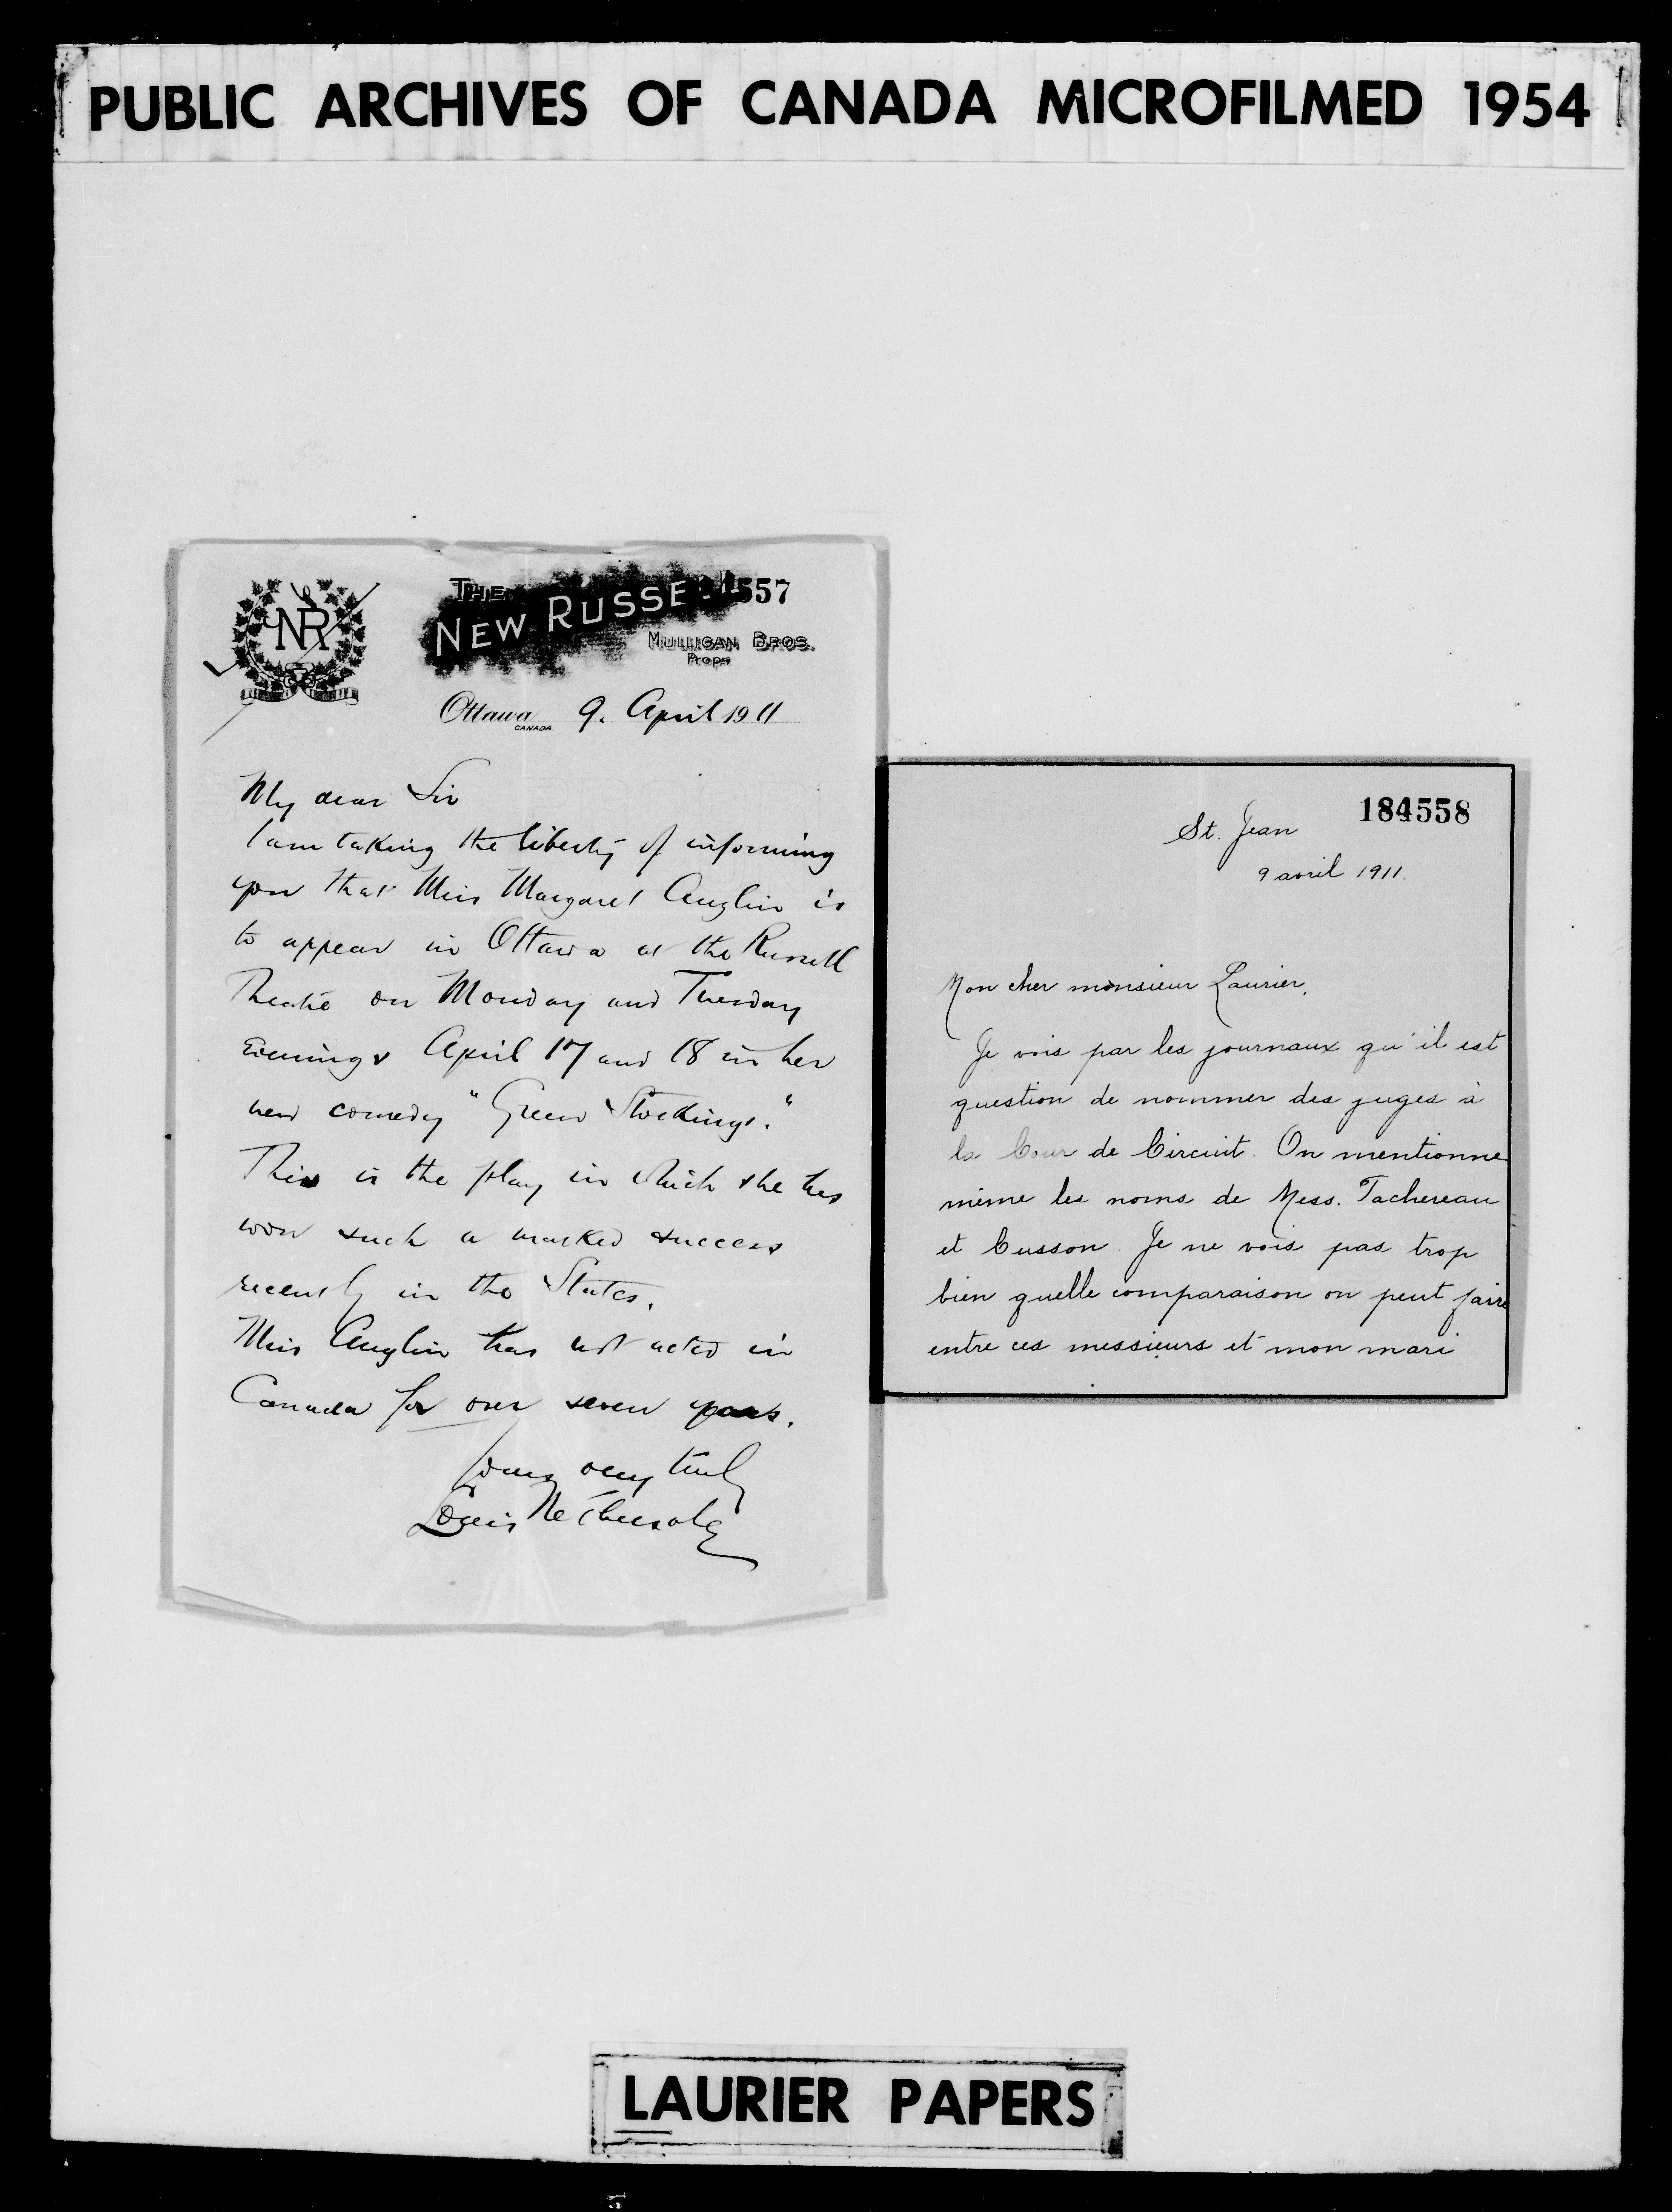 PUBLIC ARCHIVES OF CANADA MICROFILMED 1954
NR
THE
NEW RUSSE
557
MULLIGAN BROS.
Props
Ottawa 9. April 1911
CANADA
My dear Sir
I am taking the liberty of informing
you that Miss Margaret Anglin is
to appear in Ottawa at the Russell
Theatre on Monday and Tuesday
Evenings April 17 and 18 in her
new comedy "Green Stockings."
This is the play in which she has
won such a marked success
recently in the States.
Miss Anglin has not acted in
Canada for over seven years.
Yours very truly
Louis Nethersole
184558
St. Jean
9 avril 1911.
Mon cher monsieur Laurier,
Je vois par les journaux qu'il est
question de nommer des juges à
la Cour de Circuit. On mentionne
même les noms de Mess. Tachereau
et Cusson. Je ne vois pas trop
bien quelle comparaison on peut faire
entre ces messieurs et mon mari
LAURIER PAPERS